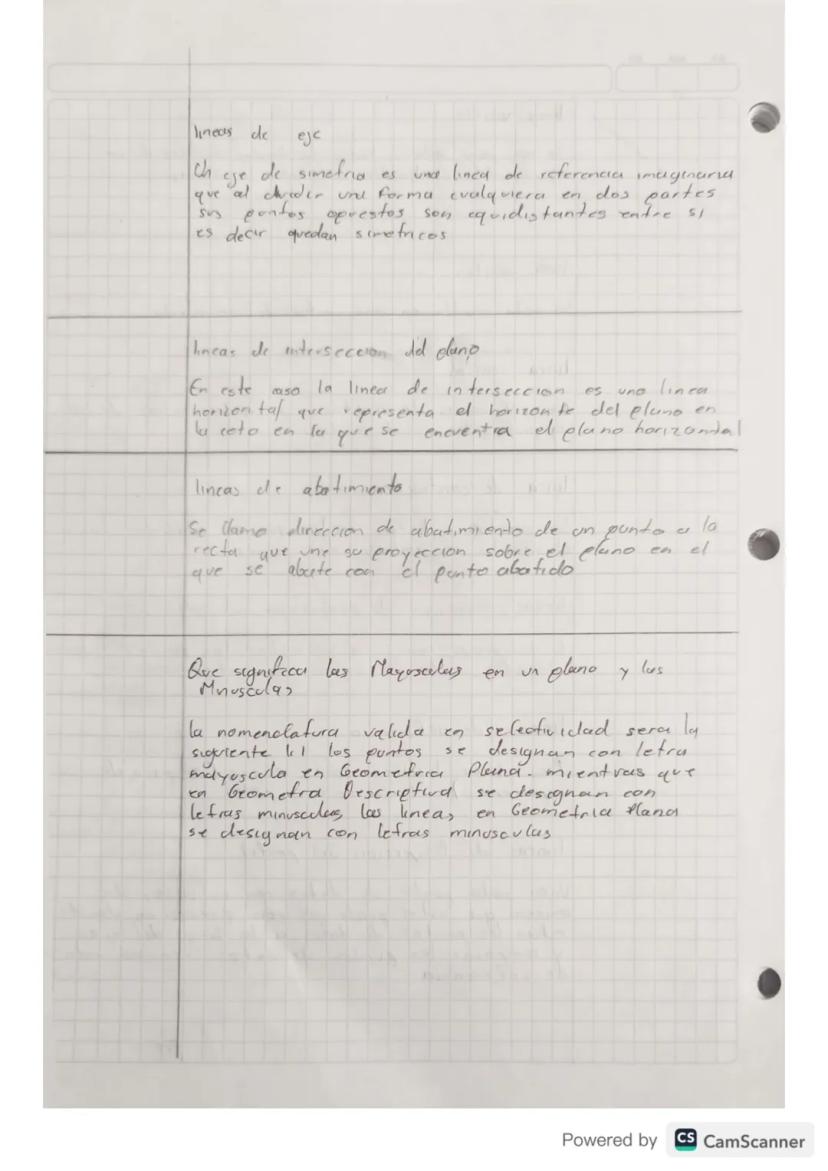 lineas de eje
eje de simetria es una linea de referencia imaginaria
que al dividir una forma cualquiera en dos partes
sus puntos opuestos son equidistantes entre si
es decir quedan simetricos
lineas de interseccion del plano
En este caso la linea de interseccion es una linea
horizontal que representa el horizonte del plano en
la en la que se encuentra el plano horizontal
lineas de abatimiento
Se llama direccion de abatimiento de un punto a la
recta que une su proyeccion sobre el plano en el
que se abate con el punto abatido
Que significa las Mayusculas en un plano y las
Minusculas
la nomenclatura valida en selectividad sera la
siguiente los puntos se designan con letra
mayuscula en Geometria Plana. mientras que
en Geometra Descriptiva se designan con
letras minusculas las lineas en Geometria Plana
se designan con letras minusculas
Powered by CS CamScanner